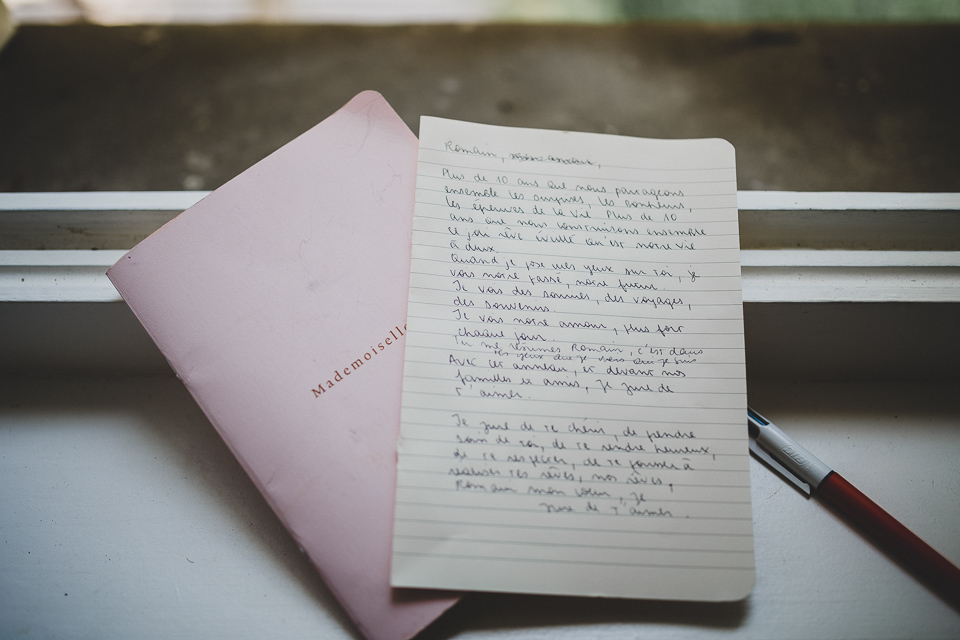 Mademoiselle
Romain,
Plus de 10 ans que nous partageons
ensemble les surprises, les bonheurs,
les épreuves de la vie. Plus de 10
ans que nous construisons ensemble
ce joli rêve éveillé qu'est notre vie
à deux.
Quand je pose mes yeux sur toi, je
vois notre passé, notre futur.
Je vois des sommets, des voyages,
des souvenirs.
Je vois notre amour, plus fort
chaque jour.
Tu me résumes Romain, c'est dans
tes yeux que je vois que je suis
Avec cet anneau, et devant nos
familles et amis, je jure de
t'aimer.
Je jure de te chérir, de prendre
soin de toi, de te rendre heureux,
de te respecter, de te pousser à
réaliser tes rêves, nos rêves,
Romain mon cœur, je
jure de t'aimer.
BIC